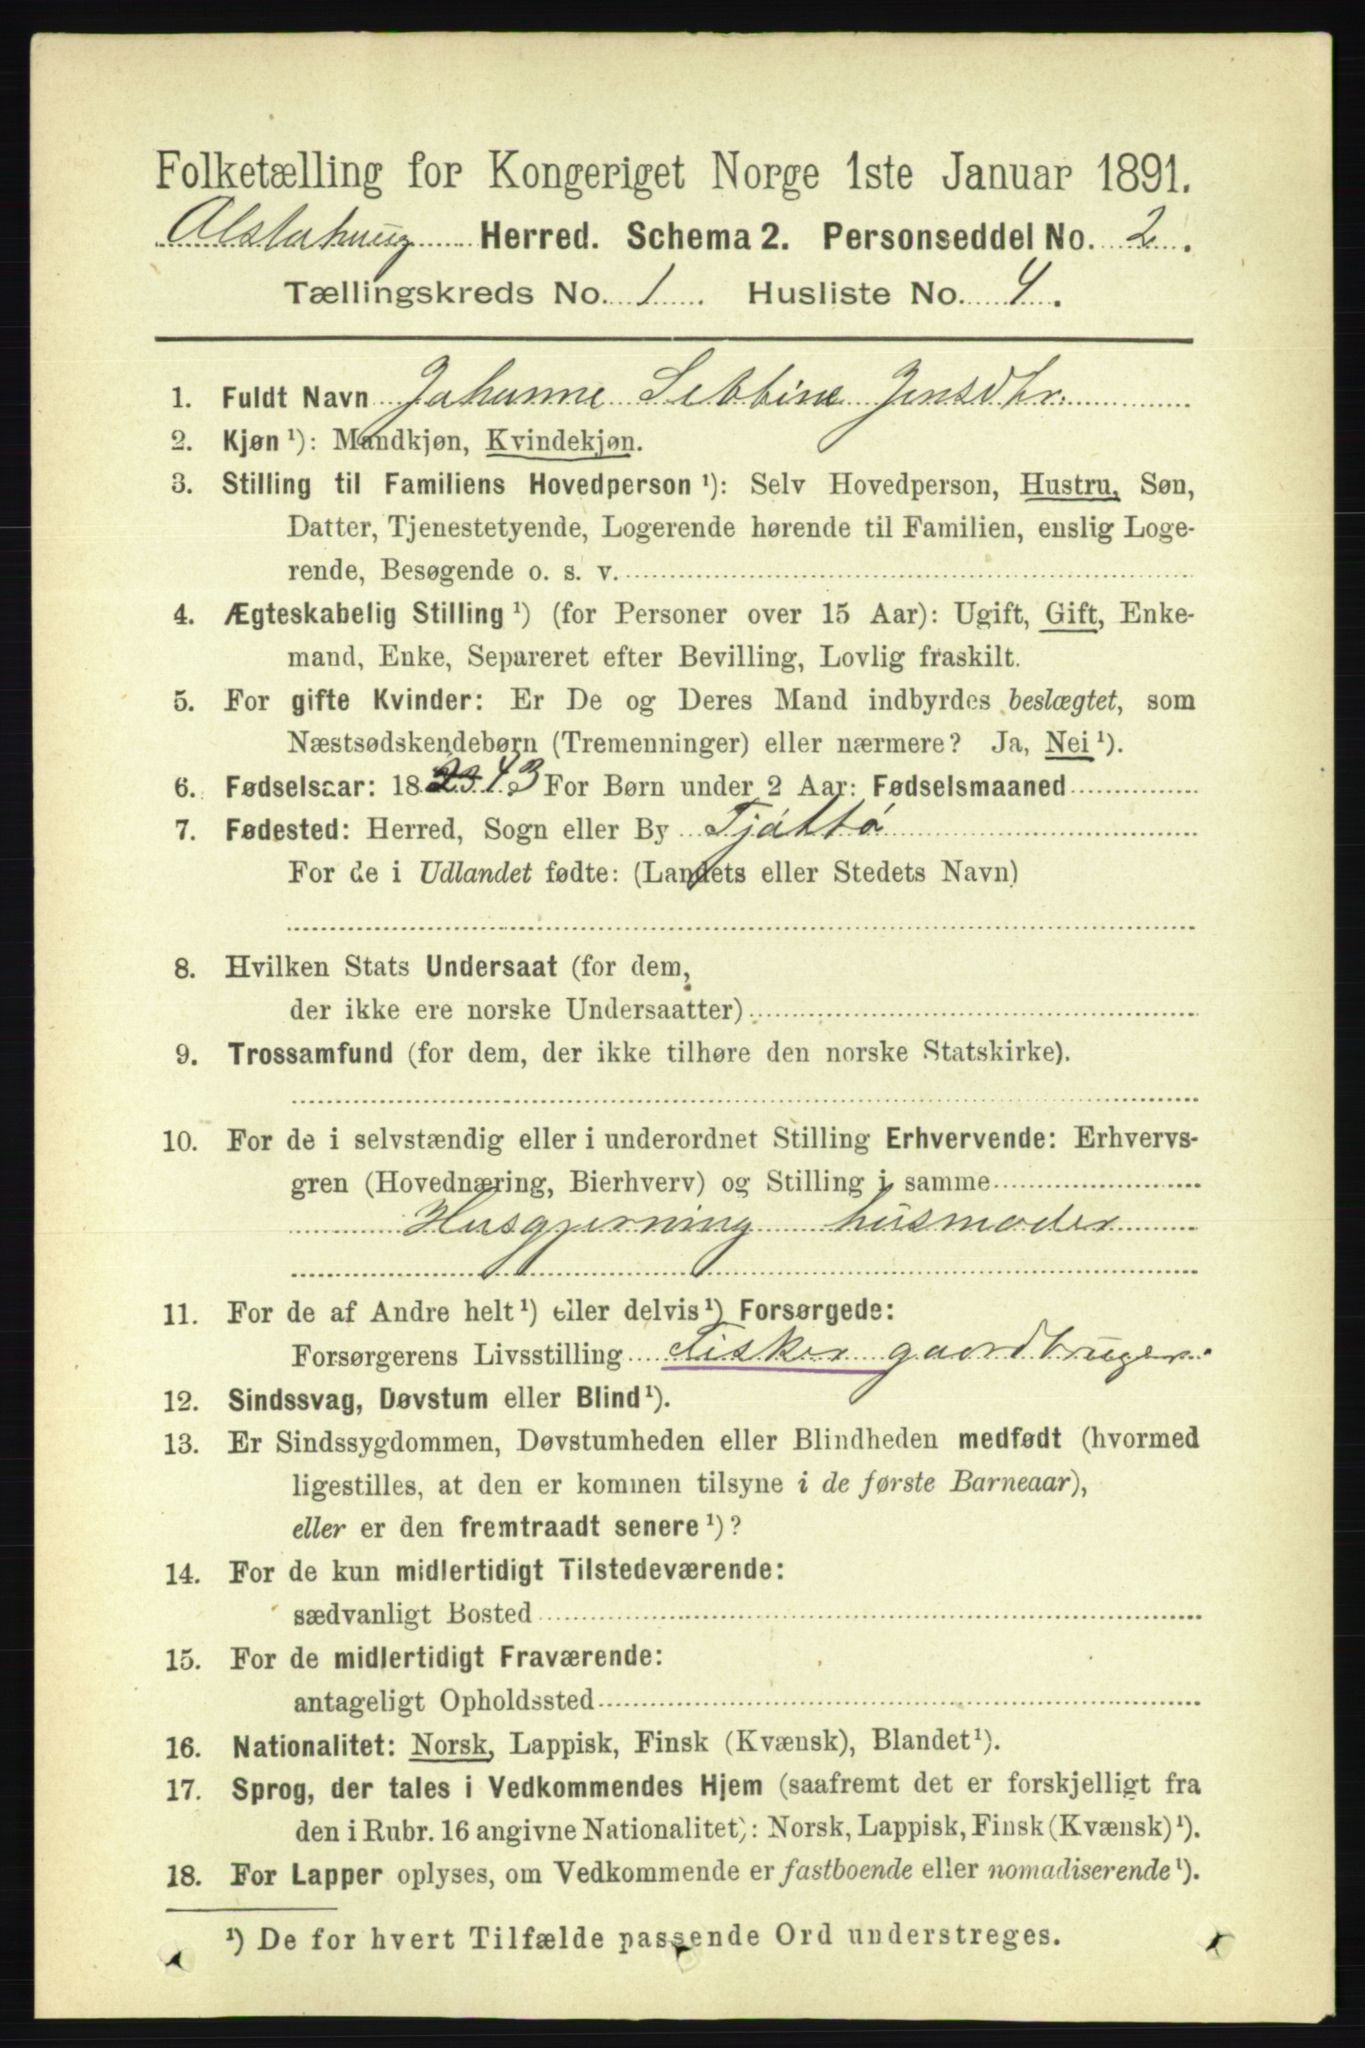 Folketælling for Kongeriget Norge 1ste Januar 1891.
Alstahaug Herred. Schema 2. Personseddel No. 2.
Tællingskreds No. 1. Husliste No. 4.
1. Fuldt Navn Johanne Jensdtr.
2. Kjøn ¹): Mandkjøn, Kvindekjøn.
3. Stilling til Familiens Hovedperson ¹): Selv Hovedperson, Hustru, Søn,
Datter, Tjenestetyende, Logerende hørende til Familien, enslig Loge-
rende, Besøgende o. s. v.
4. Ægteskabelig Stilling ¹) (for Personer over 15 Aar): Ugift, Gift, Enke-
mand, Enke, Separeret efter Bevilling, Lovlig fraskilt.
5. For gifte Kvinder: Er De og Deres Mand indbyrdes beslægtet, som
Næstsødskendebørn (Tremenninger) eller nærmere? Ja, Nei ¹).
6. Fødselsaar: 1843 For Børn under 2 Aar: Fødselsmaaned
7. Fødested: Herred, Sogn eller By Tjøttø
For de i Udlandet fødte: (Landets eller Stedets Navn)
8. Hvilken Stats Undersaat (for dem,
der ikke ere norske Undersaatter)
9. Trossamfund (for dem, der ikke tilhøre den norske Statskirke).
10. For de i selvstændig eller i underordnet Stilling Erhvervende: Erhvervs-
gren (Hovednæring, Bierhverv) og Stilling i samme
Husgjerning husmoder
11. For de af Andre helt ¹) eller delvis ¹) Forsørgede:
Forsørgerens Livsstilling Fisker gaardbruger.
12. Sindssvag, Døvstum eller Blind ¹).
13. Er Sindssygdommen, Døvstumheden eller Blindheden medfødt (hvormed
ligestilles, at den er kommen tilsyne i de første Barneaar),
eller er den fremtraadt senere ¹)?
14. For de kun midlertidigt Tilstedeværende:
sædvanligt Bosted
15. For de midlertidigt Fraværende:
antageligt Opholdssted
16. Nationalitet: Norsk, Lappisk, Finsk (Kvænsk), Blandet ¹).
17. Sprog, der tales i Vedkommendes Hjem (saafremt det er forskjelligt fra
den i Rubr. 16 angivne Nationalitet): Norsk, Lappisk, Finsk (Kvænsk) ¹).
18. For Lapper oplyses, om Vedkommende er fastboende eller nomadiserende ¹).
¹) De for hvert Tilfælde passende Ord understreges.